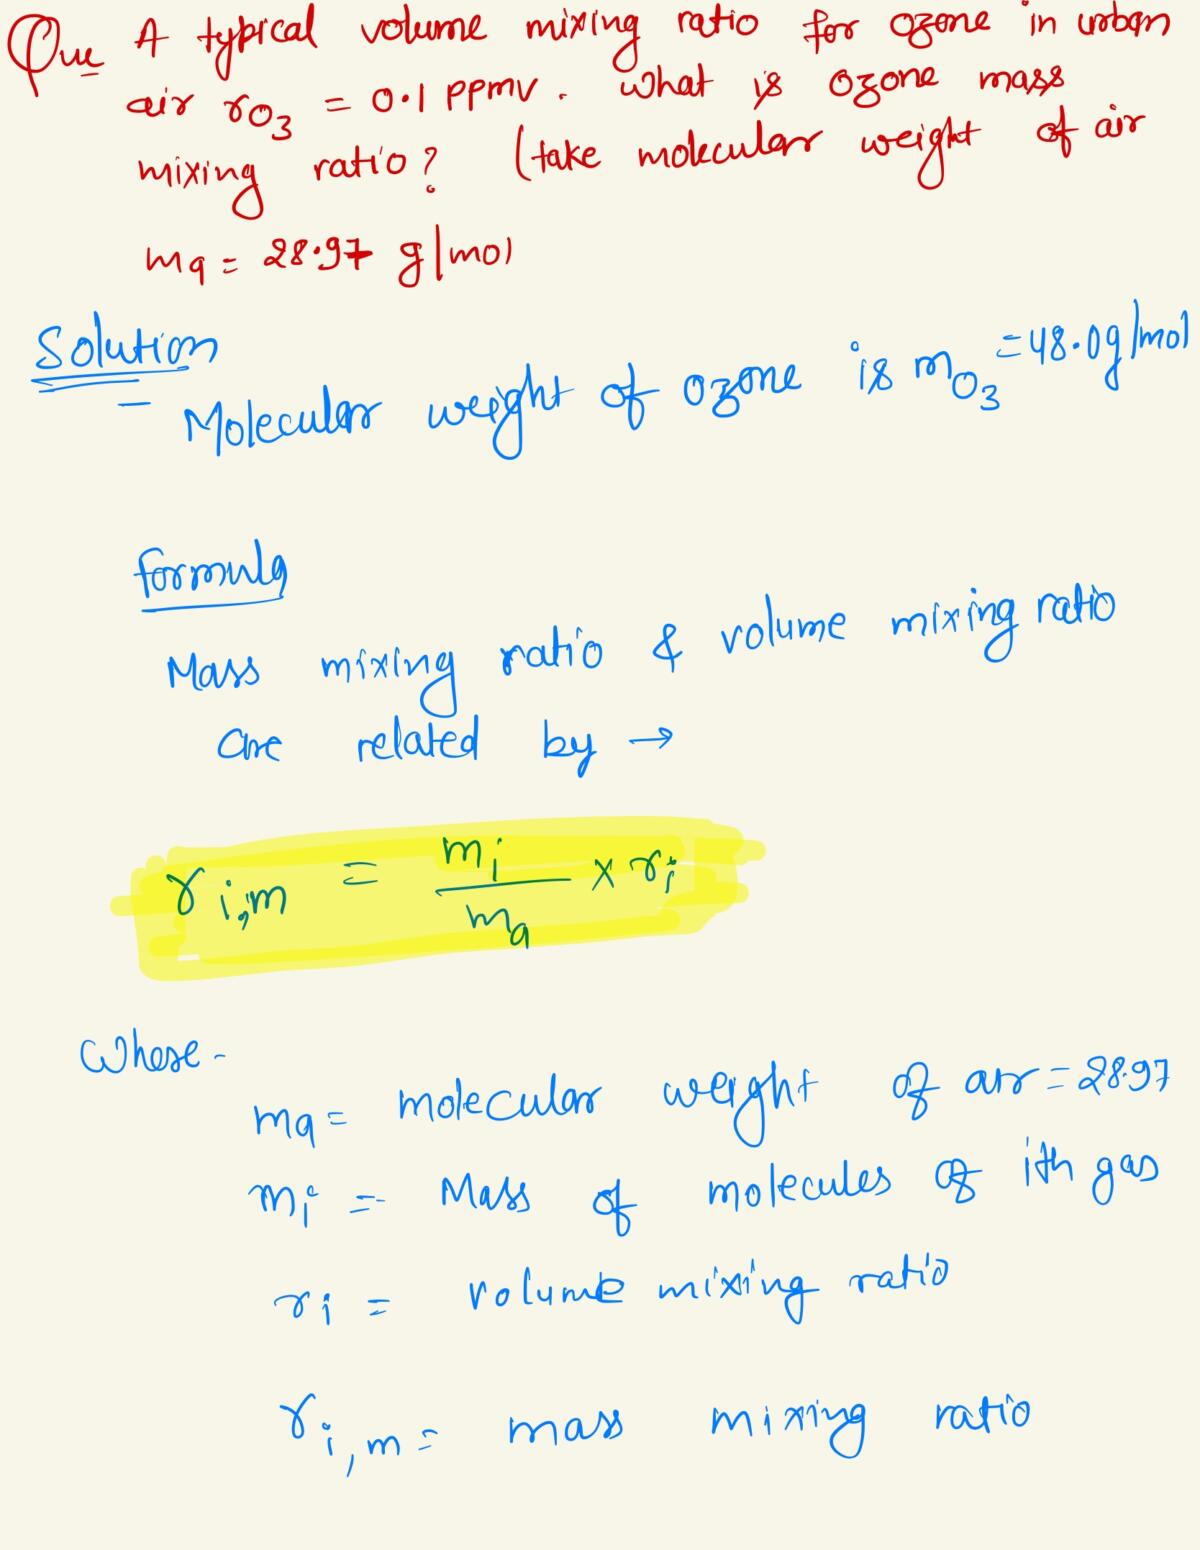 Que A typical volume mixing ratio for ozone in urban
air rO3 = 0.1 ppmv. What is ozone mass
mixing ratio? (take molecular weight of air
ma = 28.97 g/mol
Solution
- Molecular weight of ozone is mO3 = 48.0g/mol
formula
Mass mixing ratio & volume mixing ratio
are related by →
ri,m = mi/ma × ri
Where -
ma = molecular weight of air = 28.97
mi = Mass of molecules of ith gas
ri = volume mixing ratio
ri,m = mass mixing ratio